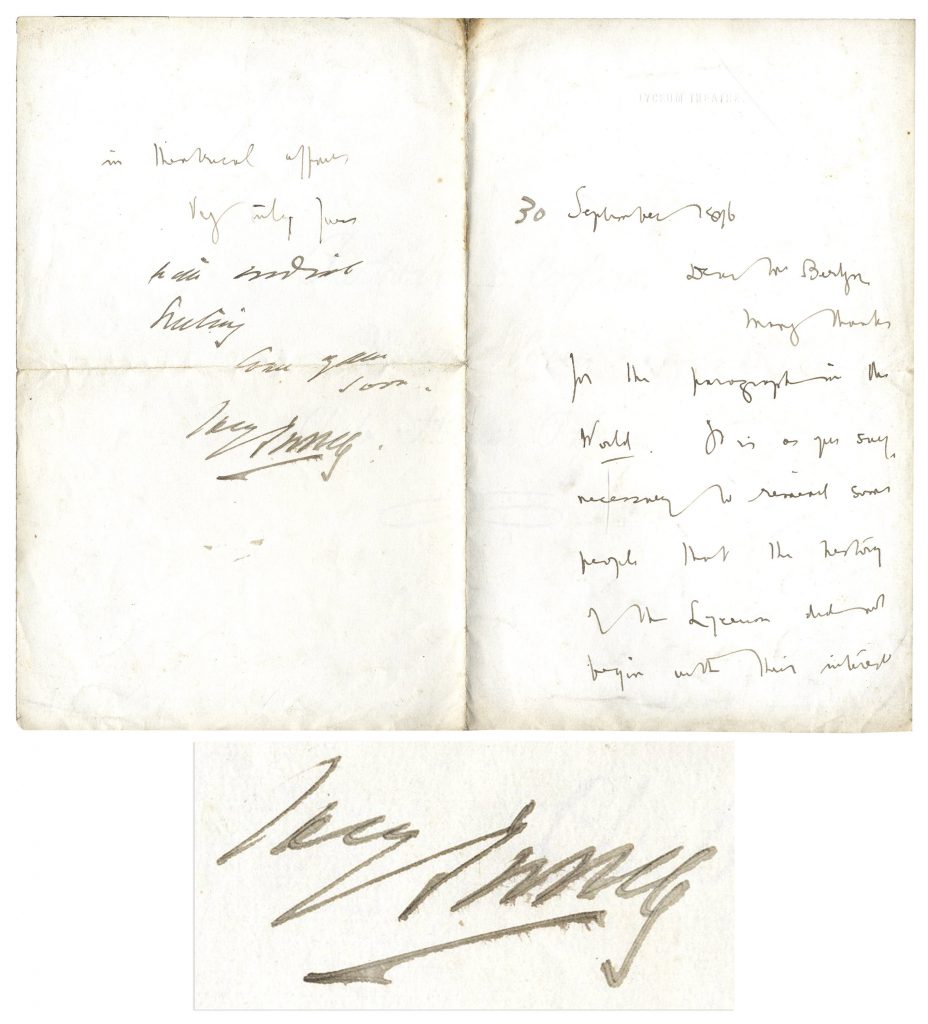 LYCEUM THEATRE.
30 September 1896
Dear Mr Berlyn
Many thanks
for the paragraph in the
World. It is as you say,
necessary to remind some
people that the history
of the Lyceum did not
begin with their interest
in theatrical affairs
Very truly yours
with cordial
greeting
Come & you
soon.
Henry Irving
Henry Irving